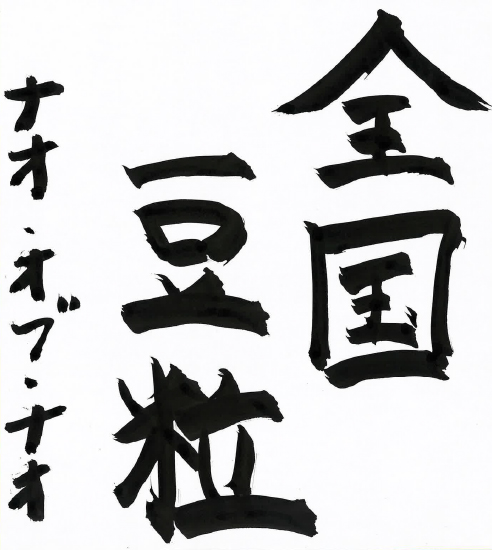 全国
豆粒
ナオ・オブ・ナオ